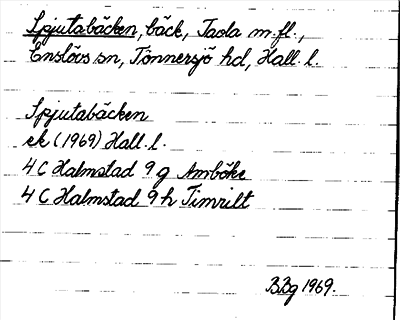 Spjutabäcken, bäck, Taola m.fl.,
Enslövs sn, Tönnersjö hd, Hall. l.
Spjutabäcken
ek (1969) Hall. l.
4 C Halmstad 9 g Amböke
4 C Halmstad 9 h Timrilt
BBg 1969.